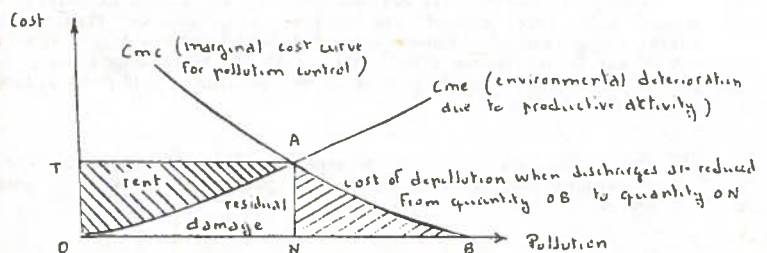 Cost
Cmc (marginal cost curve
for pollution control)
Cme (environmental deterioration
due to productive aktivity)
A
T
rent
cost of depollution when discharges are reduced
from quantity OB to quantity ON
residual
damage
O
N
B
Pollution